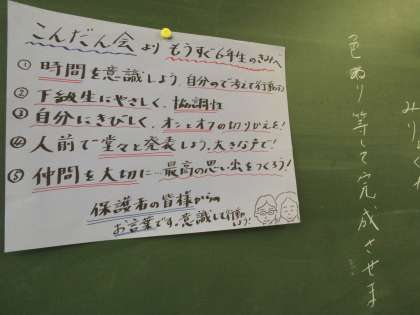 こんだん会より もうすぐ6年生のきみへ
① 時間を意識しよう。自分で考えて行動
② 下級生にやさしく。協調性
③ 自分にきびしく。オンとオフの切りかえを!
④ 人前で堂々と発表しよう。大きな声で!
⑤ 仲間を大切に…最高の思い出をつくろう!
保護者の皆様からの
お言葉です。意識して行動
しよう!
色ぬり等して完成させま